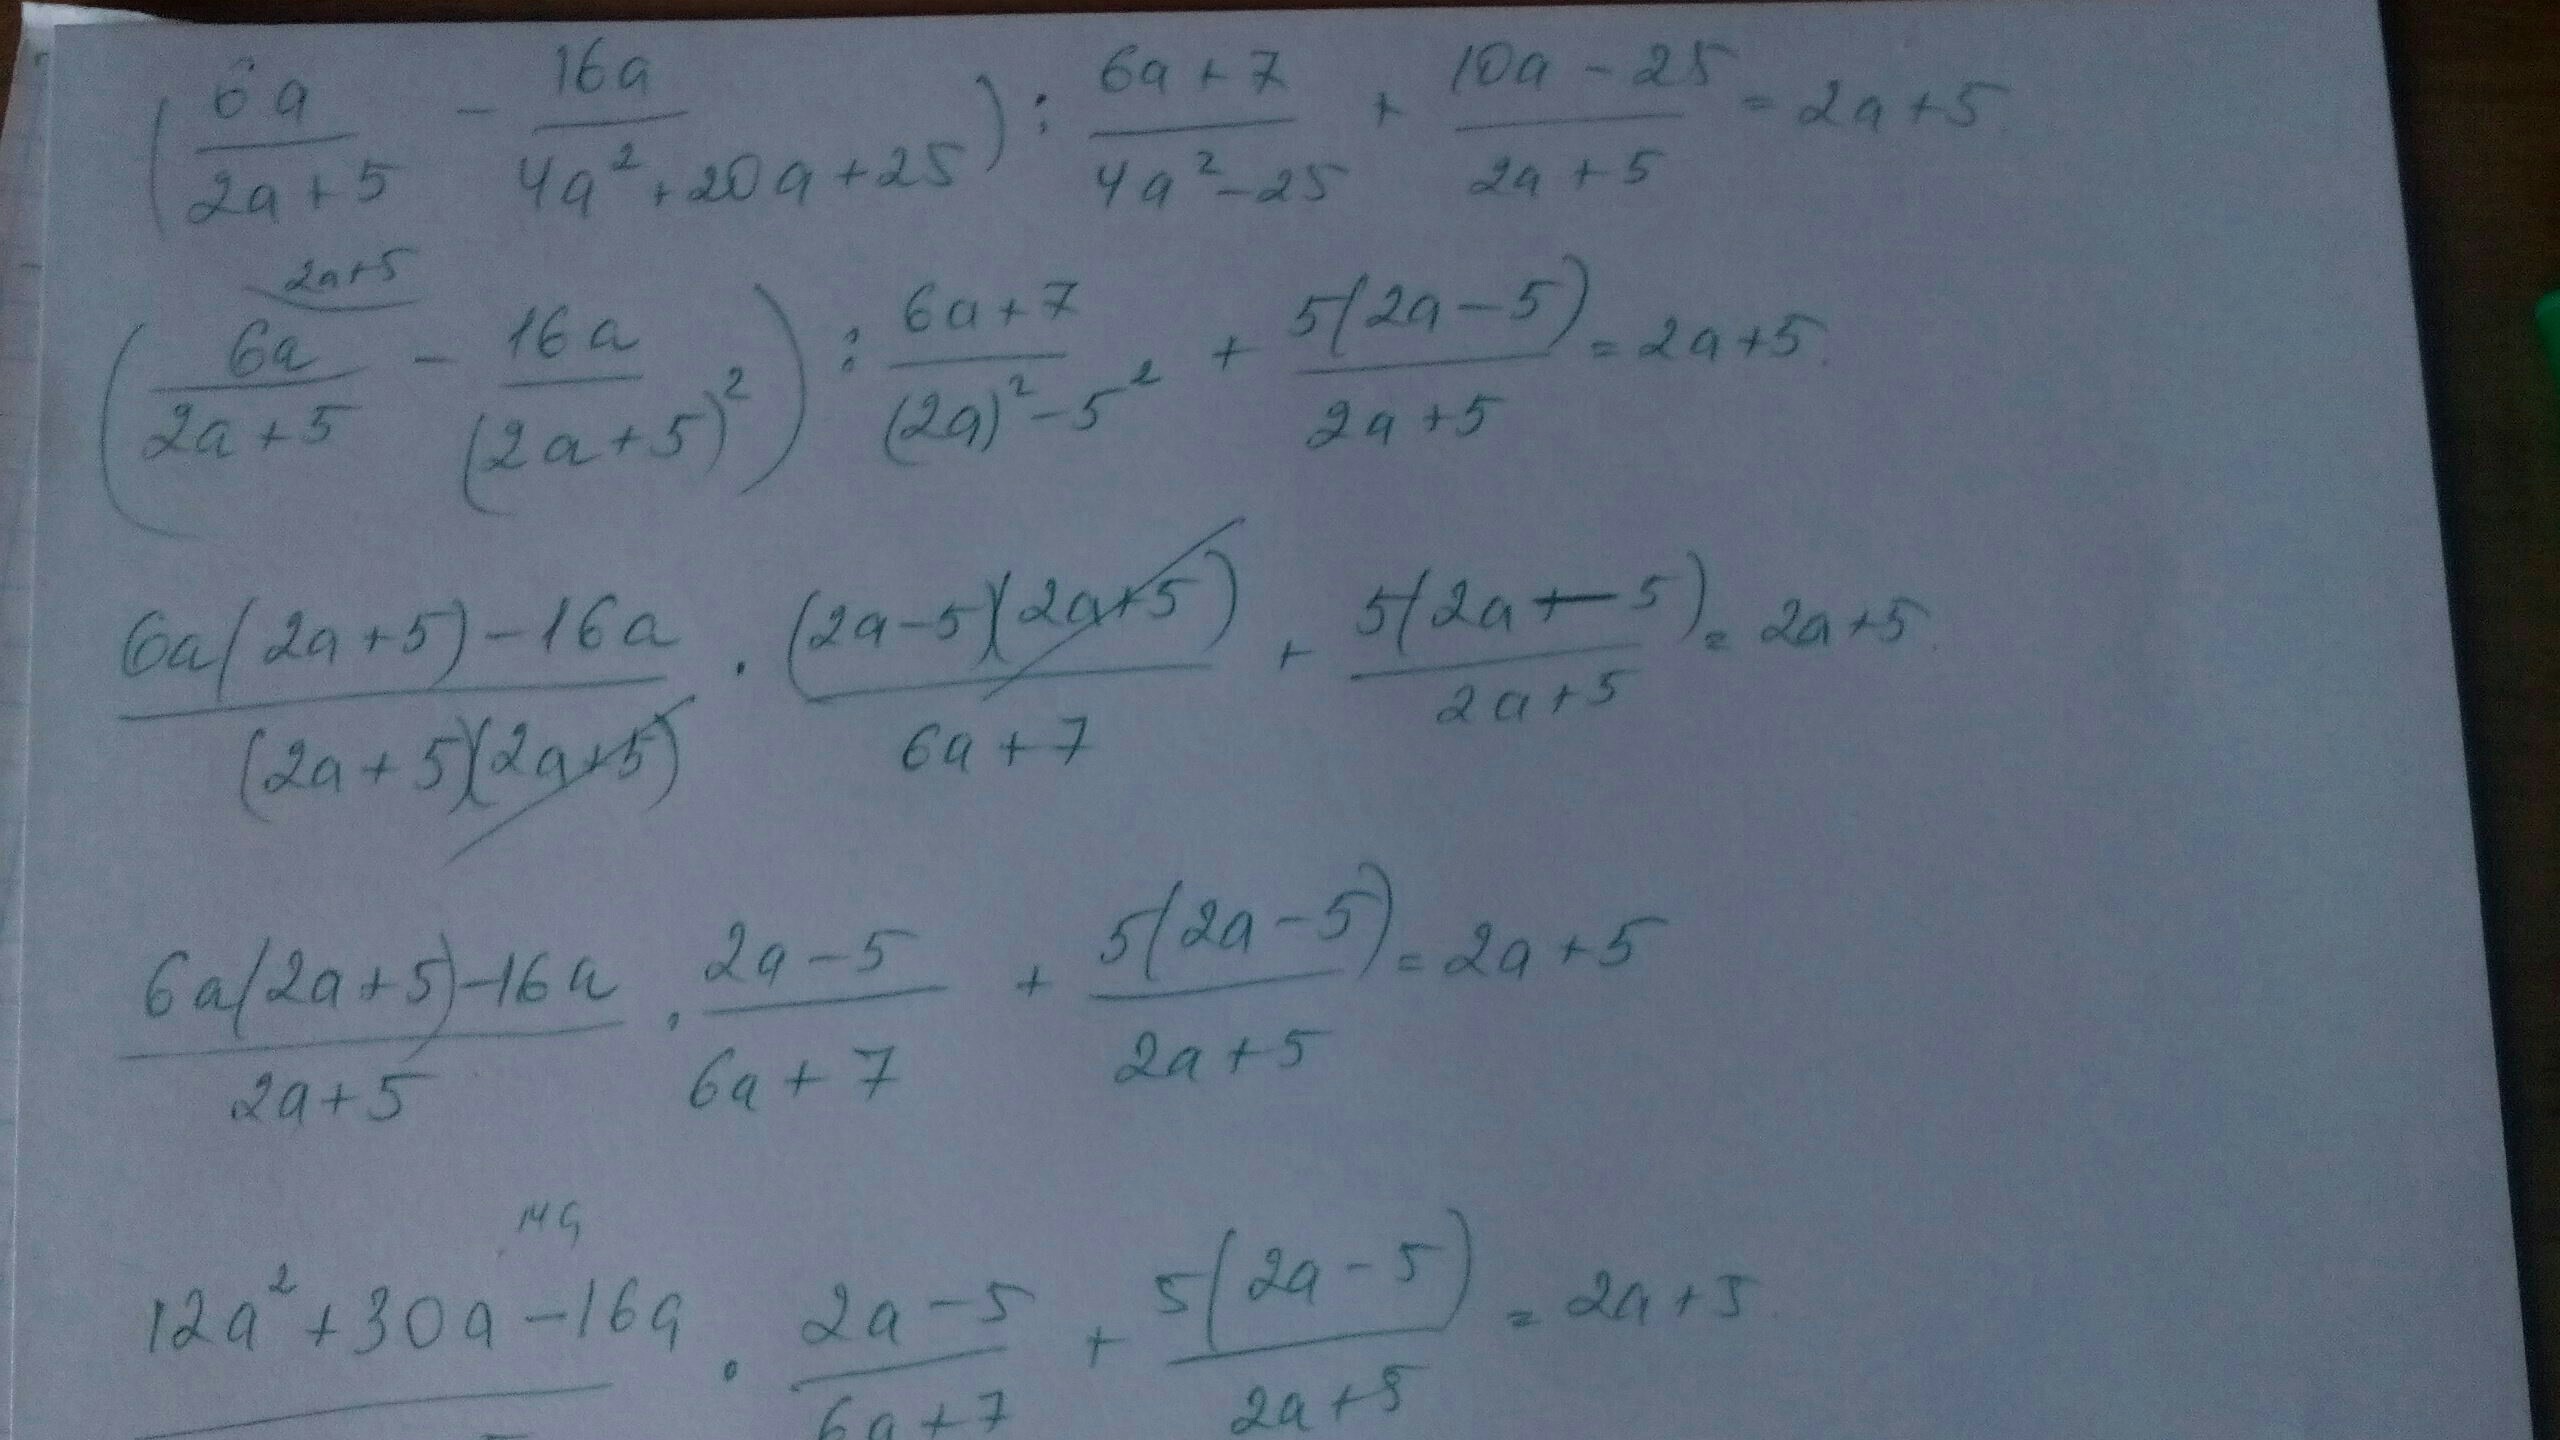 (6a/(2a+5) - 16a/(4a²+20a+25)) : (6a+7)/(4a²-25) + (10a-25)/(2a+5) = 2a+5.
2a+5
(6a/(2a+5) - 16a/(2a+5)²) : (6a+7)/((2a)²-5²) + 5(2a-5)/(2a+5) = 2a+5.
(6a(2a+5)-16a)/((2a+5)(2a+5)) · (2a-5)(2a+5)/(6a+7) + 5(2a-5)/(2a+5) = 2a+5.
(6a(2a+5)-16a)/(2a+5) · (2a-5)/(6a+7) + 5(2a-5)/(2a+5) = 2a+5
14a
12a²+30a-16a · (2a-5)/(6a+7) + 5(2a-5)/(2a+5) = 2a+5.